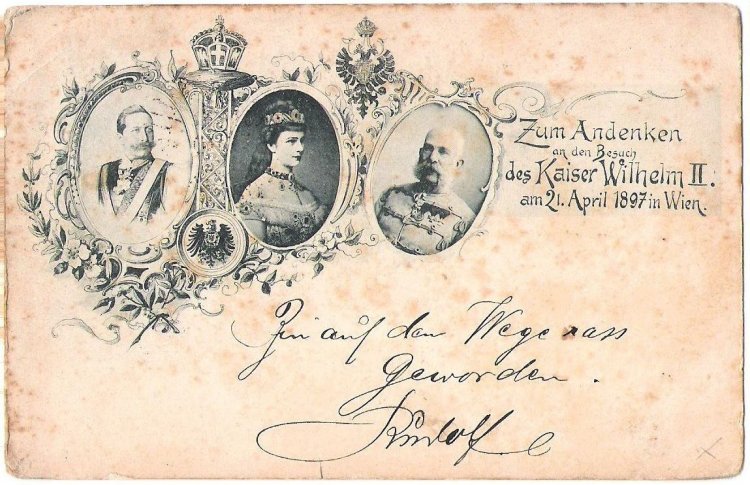 Zum Andenken
an den Besuch
des Kaiser Wilhelm II.
am 21. April 1897 in Wien.
Bin auf dem Wege nass
Geworden.
Rudolf